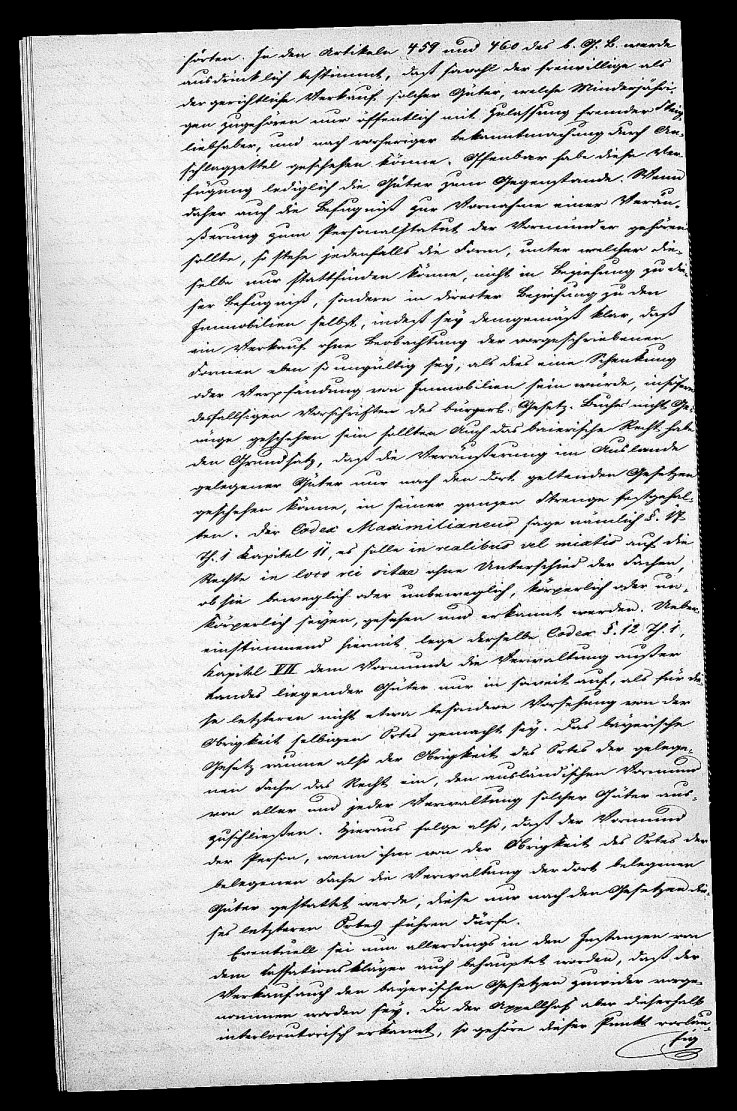 hörten. In den Artikeln 459 und 460 des b. G. B. werde
ausdrücklich bestimmt, daß sowohl der freiwillige als
der gerichtliche Verkauf solcher Güter, welche Minderjähri-
gen zugehören nur öffentlich mit Zulassung fremder Steig
liebhaber, und nach vorheriger Bekanntmachung durch An-
schlagzettel geschehen könne. Offenbar habe diese Ver-
fügung lediglich die Güter zum Gegenstande. Wenn
daher auch die Befugniß zur Vornahme einer Veräu-
ßerung zum Personalstatut der Vormünder gehören
sollte, so stehe jedenfalls die Form, unter welcher die-
selbe nur stattfinden könne, nicht in Beziehung zu die-
ser Befugniß, sondern in directer Beziehung zu den
Immobilien selbst, indeß sey demgemäß klar, daß
ein Verkauf ohne Beobachtung der vorgeschriebenen
Formen eben so ungültig sey, als dies eine Schenkung
oder Verpfändung von Immobilien sein würde, insofern
desfallsigen Vorschriften des bürgerl. Gesetz-Buches nicht Ge-
nüge geschehen sein sollten. Auch das baierische Recht habe
den Grundsatz, daß die Veräußerung im Auslande
gelegener Güter nur nach den dort geltenden Gesetzen
geschehen könne, in seiner ganzen Strenge festgehal-
ten. Der Codex Maximilianeus sage nämlich §. 17
Th. 1 Kapitel 11, es solle in realibus vel mixtis auf die
Rechte in loco rei sitae ohne Unterschied der Sachen,
ob sie beweglich oder unbeweglich, körperlich oder un-
körperlich seyen, gesehen und erkannt werden. Ueber-
einstimmend hiermit lege derselbe Codex §. 12 Th. 1,
Kapitel VII dem Vormunde die Verwaltung außer
Landes liegender Güter nur in soweit auf, als für die-
se letzteren nicht etwa besondere Vorsehung von der
Obrigkeit selbigen Ortes gemacht sey. Das bayerische
Gesetz räume also der Obrigkeit des Ortes der gelege-
nen Sache das Recht ein, den ausländischen Vormund
von aller und jeder Verwaltung solcher Güter aus-
zuschließen. Hieraus folge also, daß der Vormund
der Person, wenn ihm von der Obrigkeit des Ortes der
belegenen Sache die Verwaltung der dort belegenen
Güter gestattet werde, diese nur nach den Gesetzen die-
ses letzteren Ortes führen dürfe.
Eventuell sei nun allerdings in den Instanzen von
dem Cassationskläger auch behauptet worden, daß der
Verkauf auch den bayerischen Gesetzen zuwider vorge-
nommen worden sey. Da der Appellhof aber dieserhalb
interlocutorisch erkannt, so gehöre dieser Punkt vorläu-
fig